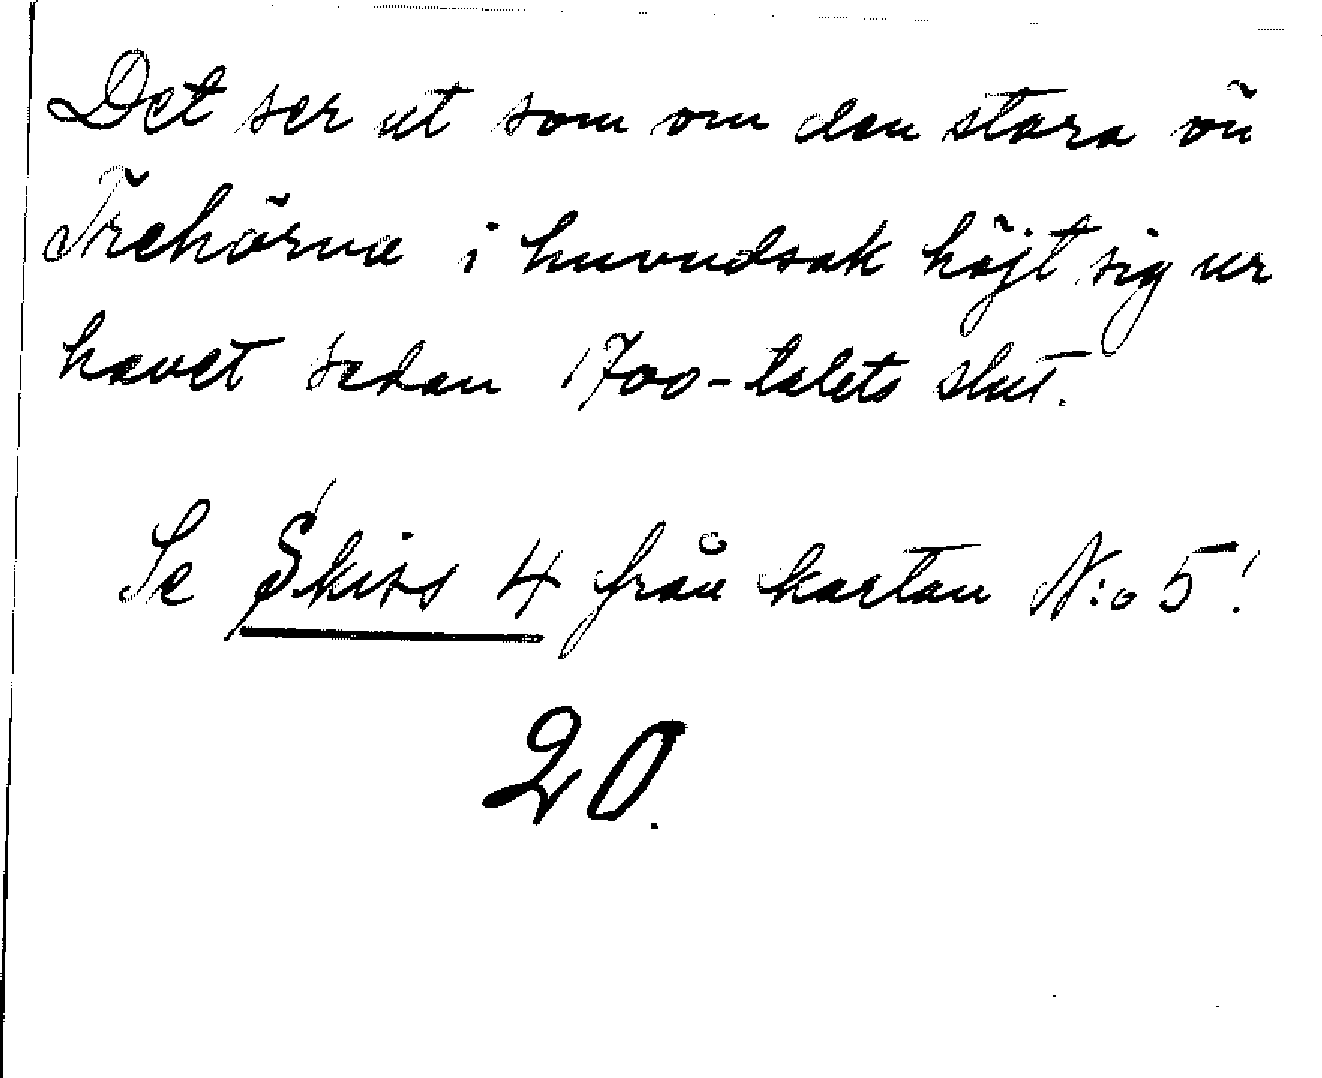 Det ser ut som om den stora ön
Trehörna i huvudsak höjt sig ur
havet sedan 1700-talets slut.
Se Skiss 4 från kartan N:o 5!
20.